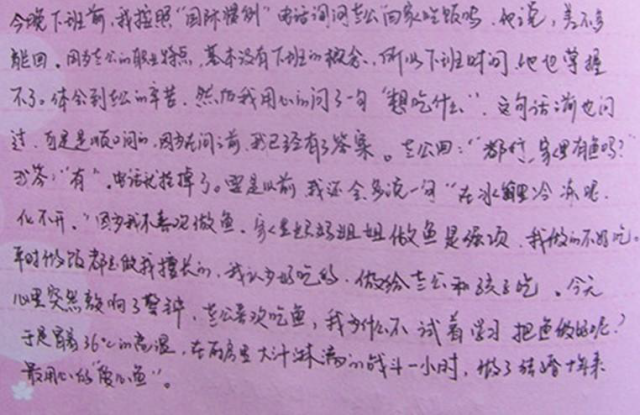 今晚下班前，我按照“国际惯例”电话询问老公回家吃饭吗，他说，差不多
能回。因为老公的职业特点，基本没有下班的概念，所以下班时间他也掌握
不了。体会到老公的辛苦，然后我用心的问了一句“想吃什么”，这句话之前也问
过，可是是顺口问的，因为在问之前，我已经有了答案。老公回：“都行，家里有鱼吗？”
我答“有”。电话就挂掉了。要是以前我还会多说一句“在冰箱里冷冻呢，
化不开。”因为我不喜欢做鱼。家里妈妈姐姐做鱼是强项，我做的不好吃。
平时做饭都是做我擅长的，我认为好吃的，做给老公和孩子吃。今天
心里突然敲响了警钟，老公喜欢吃鱼，我为什么不试着学习把鱼做好呢？
于是冒着36℃的高温，在厨房里大汗淋漓的战斗一小时，做了结婚十年来
最用心的“爱心鱼”。